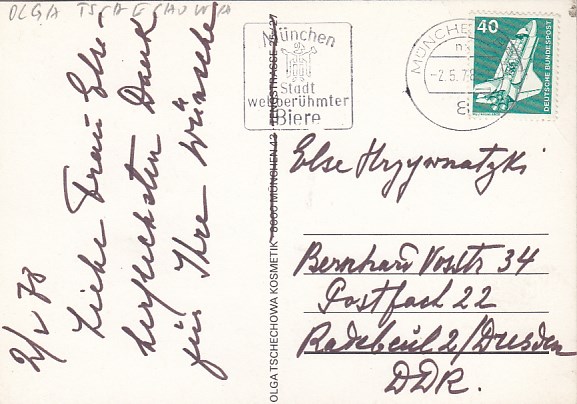 OLGA TSCHECHOWA
2/V 78
Liebe Frau Else –
herzlichsten Dank
für Ihre Wünsche
OLGA TSCHECHOWA KOSMETIK · 8000 MÜNCHEN 43 · TENGSTRASSE 25/27
München
Stadt
weltberühmter
Biere
MÜNCHEN
-2.5.78
8
40
DEUTSCHE BUNDESPOST
Else
Bernhard Vosstr 34
Postfach 22
Radebeul 2/Dresden
DDR.